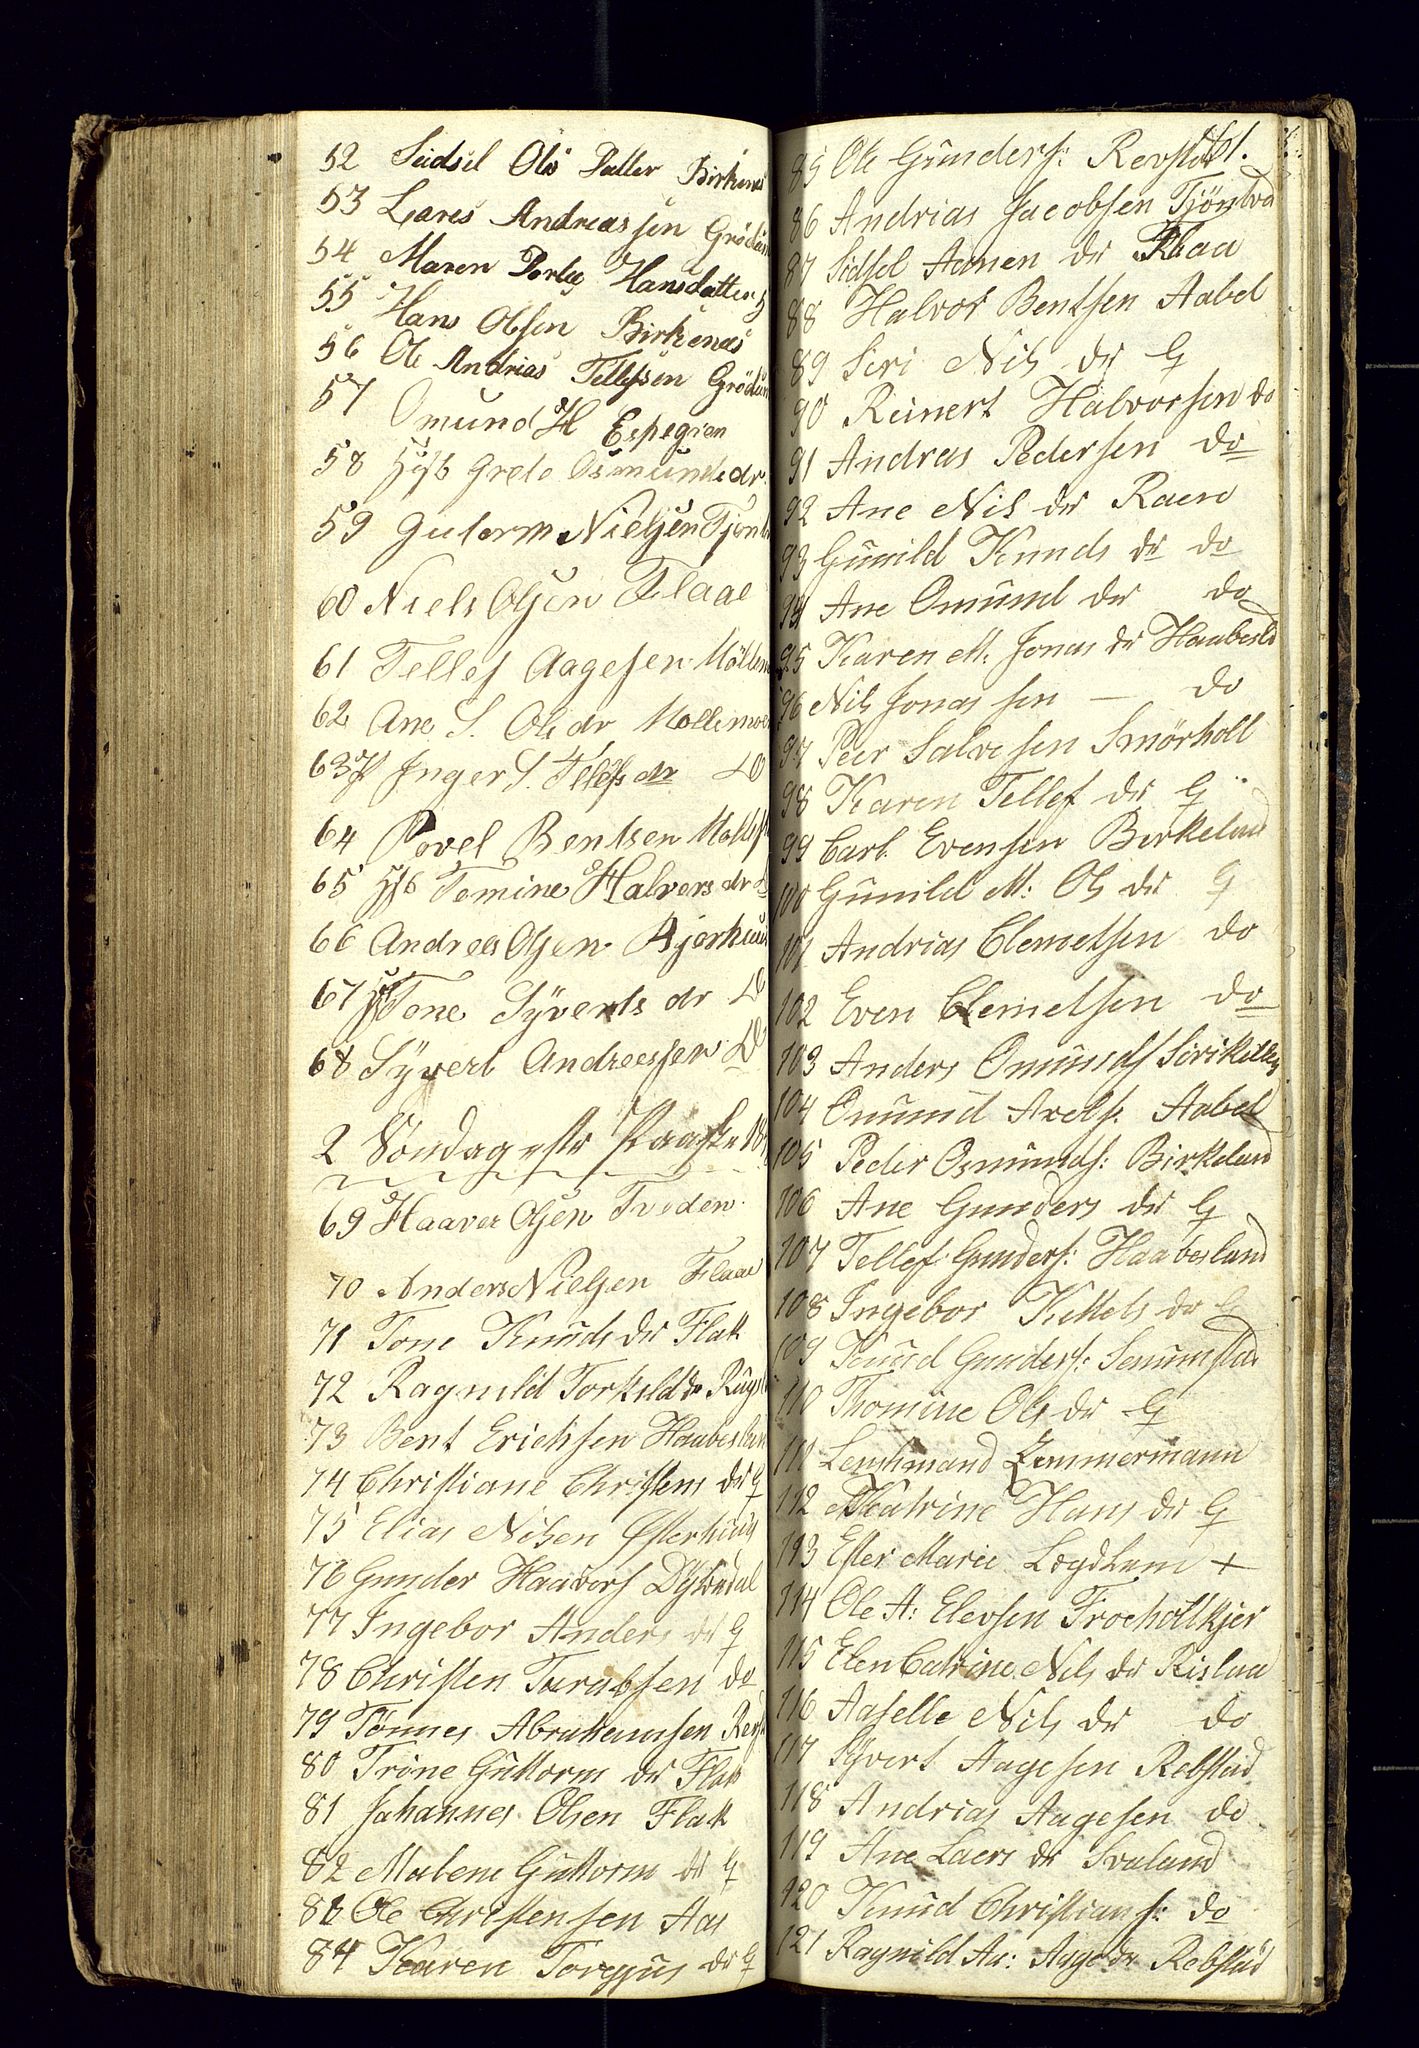 52 Sidsel Ols Datter Birkenes
53 Lars Andreassen
54 Maren Hansdatter
55 Hans Olsen Birkenes
56 Ole Andrias Tellefsen
57 Omund H Espegren
58 Grete Osmundsdr.
59 Gutorm Nielsen
60 Niels Olsen Flaae
61 Tellef Aagesen
62 Ane S. Ols dr
63 Inger S. Tellefs dr Do
64 Povel Bentsen
65 Tomine Halvors dr
66 Andreas Olsen
67 Tone Syverts dr Do
68 Syvert Andreassen Do
2 Söndag efter Paaske
69 Haaver Olsen Tveden
70 Anders Nielsen Flaae
71 Tone Knuds dr Flak
72 Ragnild Torkilds dr
73 Bent Erichsen Haabesland
74 Christiane Christens dr G
75 Elias Nilsen
76 Gunder Haavors
77 Ingebor Anders dr G
78 Christen do
79 Tönnes Abrahamsen
80 Tröne Guttorms dr Flak
81 Johannes Olsen Flak
82 Malene Guttorms dr G
83 Ole Christensen Aas
84 Karen Torgjus dr G
85 Ole Gunders:
86 Andrias Jacobsen
87 Sidsel Aamen dr Flaa
88 Halvor Bentsen Aabel
89 Siri Nils dr G
90 Reinert Halvorsen do
91 Andras Pedersen do
92 Ane Nils dr Raen
93 Gunild Knuds dr do
94 Ane Omund dr do
95 Karen M: Jonas dr Haabesld
96 Nils Jonassen — do
97 Peer Salvesen Smörholt
98 Karen Tellef dr G
99 Carl Evensen Birkeland
100 Gunild M: Ols dr G
101 Andrias Clemetsen do
102 Even Clemetsen do
103 Anders Omunds
104 Omund Axels: Aabel
105 Peder Osmunds: Birkeland
106 Ane Gunders dr G
107 Tellef Gunders: Haabesland
108 Ingebor Kittels dr G
109 Knud Gunders:
110 Thomine Ols dr G
111 Zemmermann
112 Katrine Hans dr G
113 Ester Marie +
114 Ole A: Elevsen
115 Elen Catrine Nils dr Rislaa
116 Aaselle Nils dr do
117 Syvert Aagesen Rebstad
118 Andrias Aagesen do
119 Ane Laers dr Svaland
120 Knud Christians: do
121 Ragnild Aa: Aage dr Rebstad